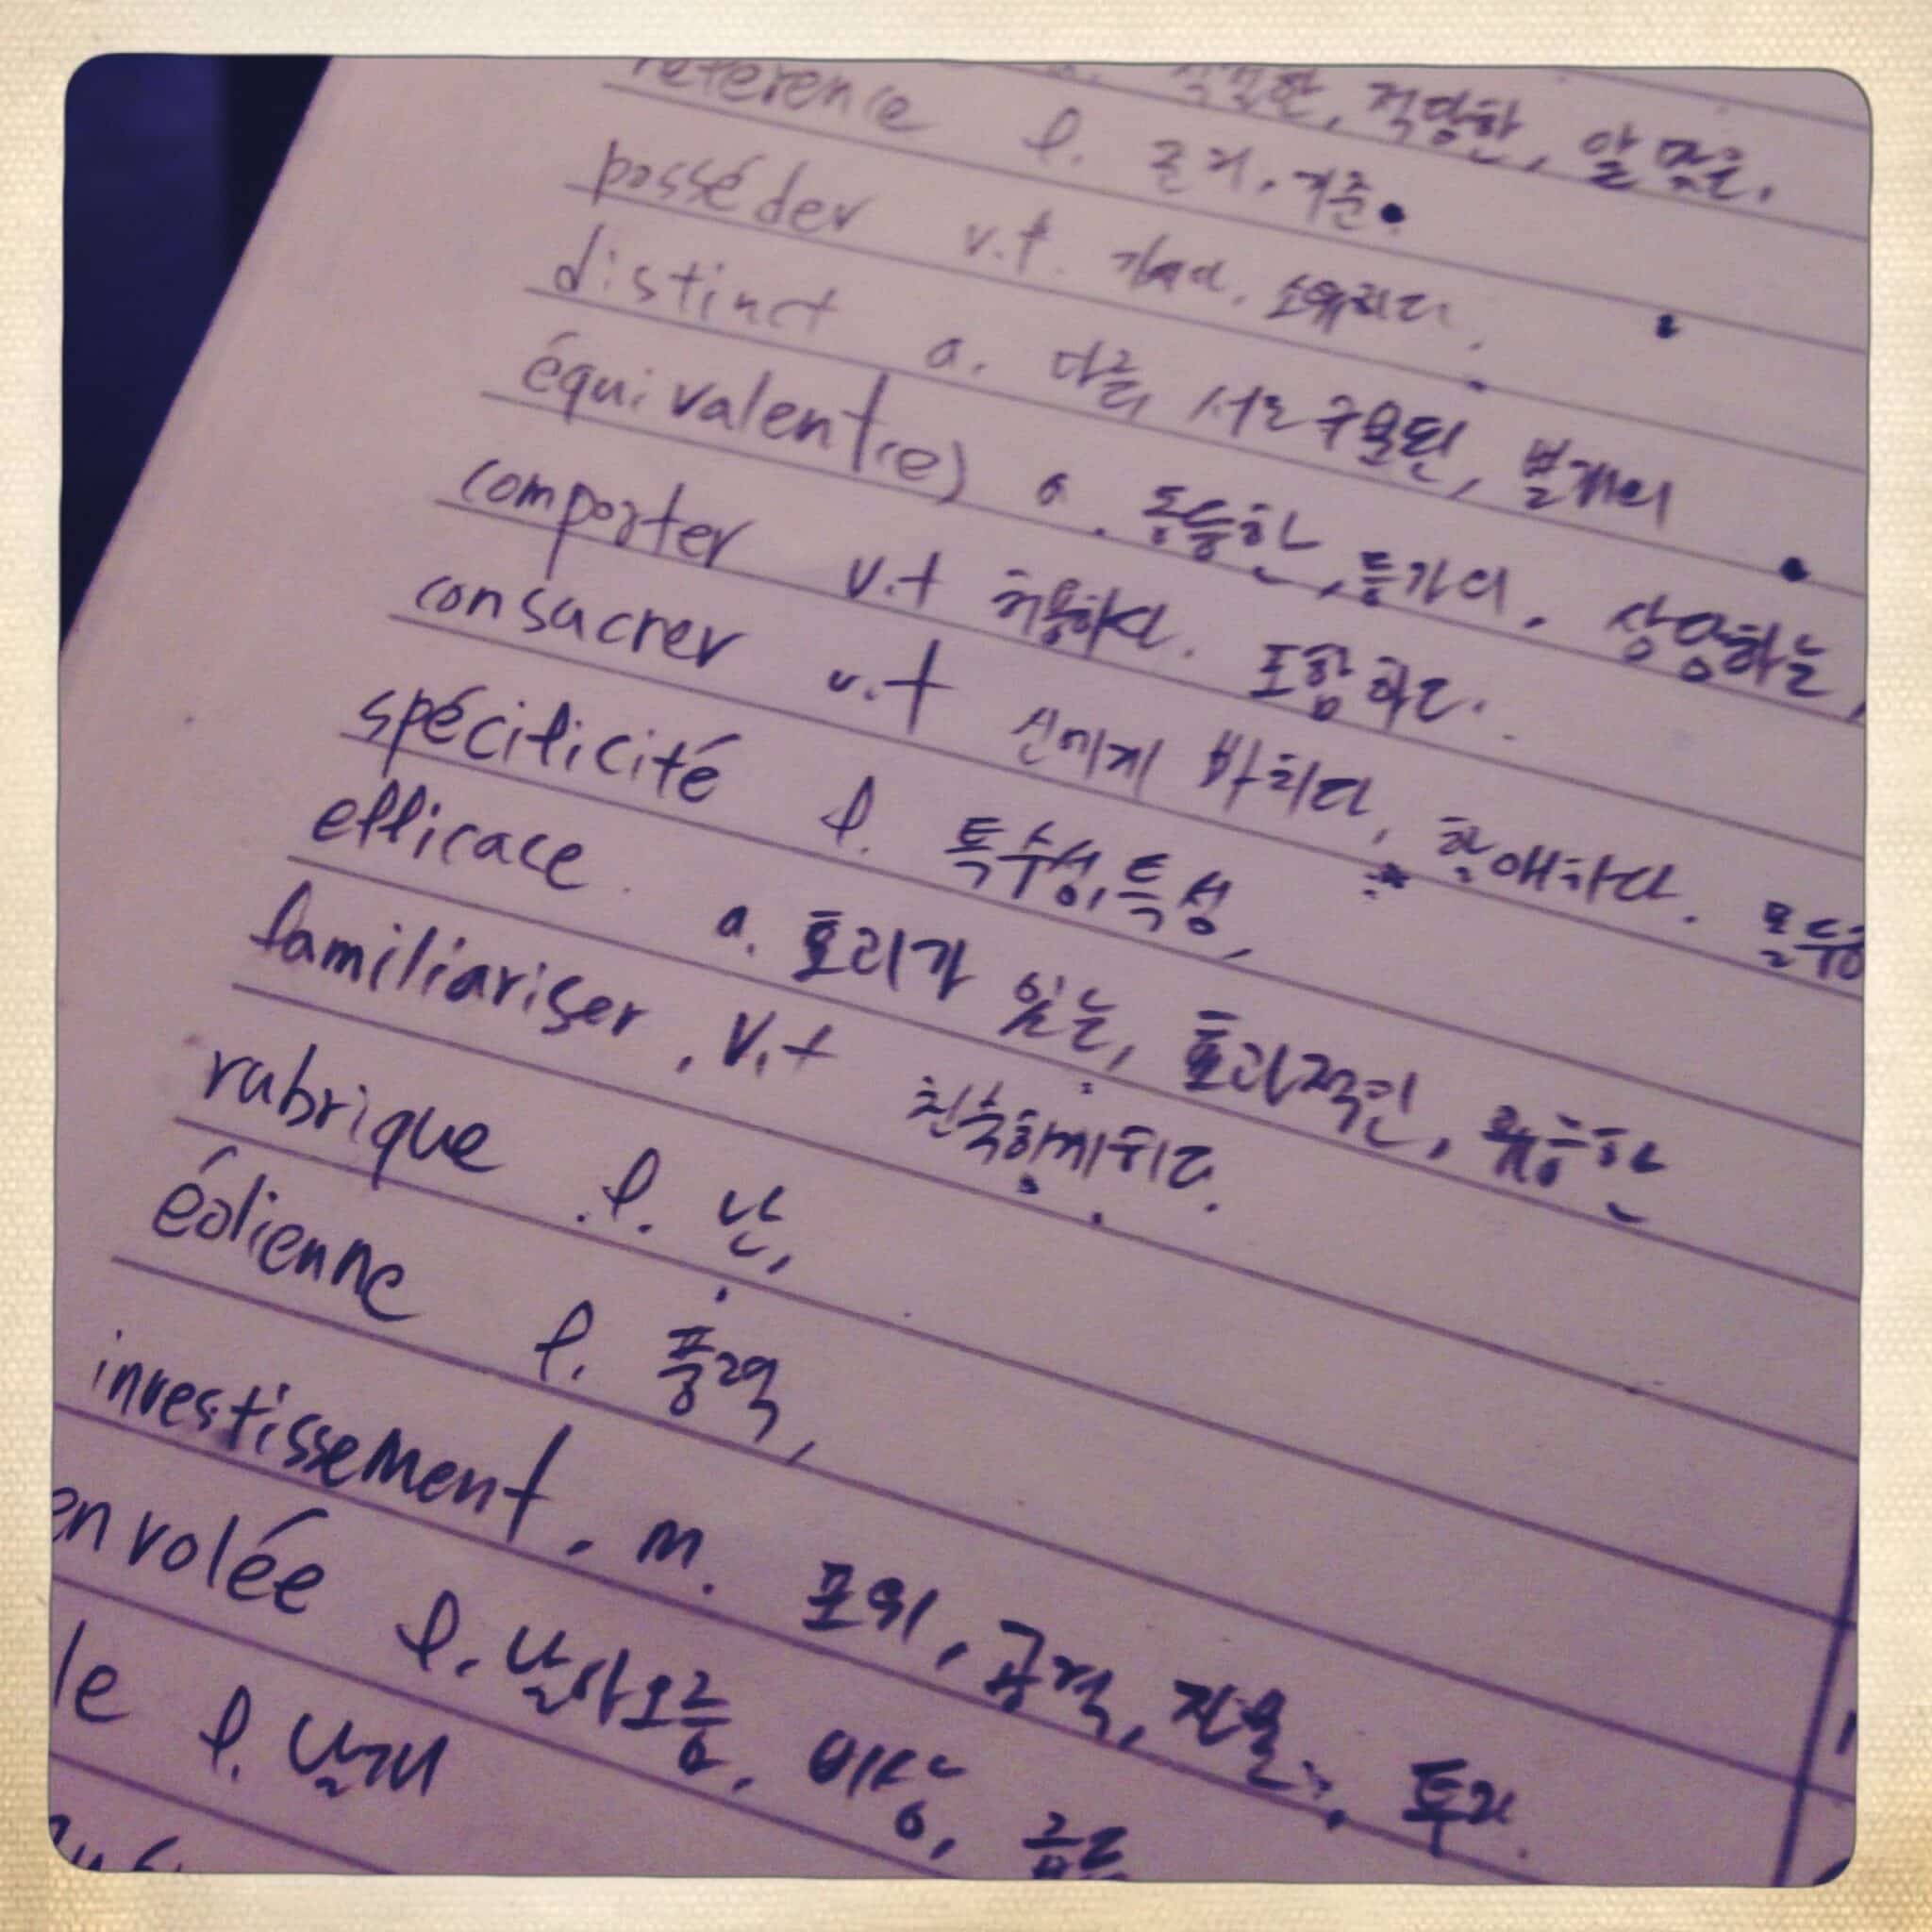 적당한, 알맞은,
référence f. 근거, 기준
posséder v.t. 가지다, 소유하다,
distinct a. 다른, 서로 구분된, 별개의
équivalent(e) a. 동등한, 등가의, 상응하는,
comporter v.t 허용하다. 포함하다.
consacrer v.t 신에게 바치다, 할애하다.
spécificité f. 특수성, 특성,
efficace. a. 효력가 있는, 효과적인, 유능한
familiariser, v.t 친숙하게하다.
rubrique f. 난,
éolienne f. 풍력,
investissement, m. 포위, 공격, 투자.
envolée f. 날아오름, 비상,
le f. 날개